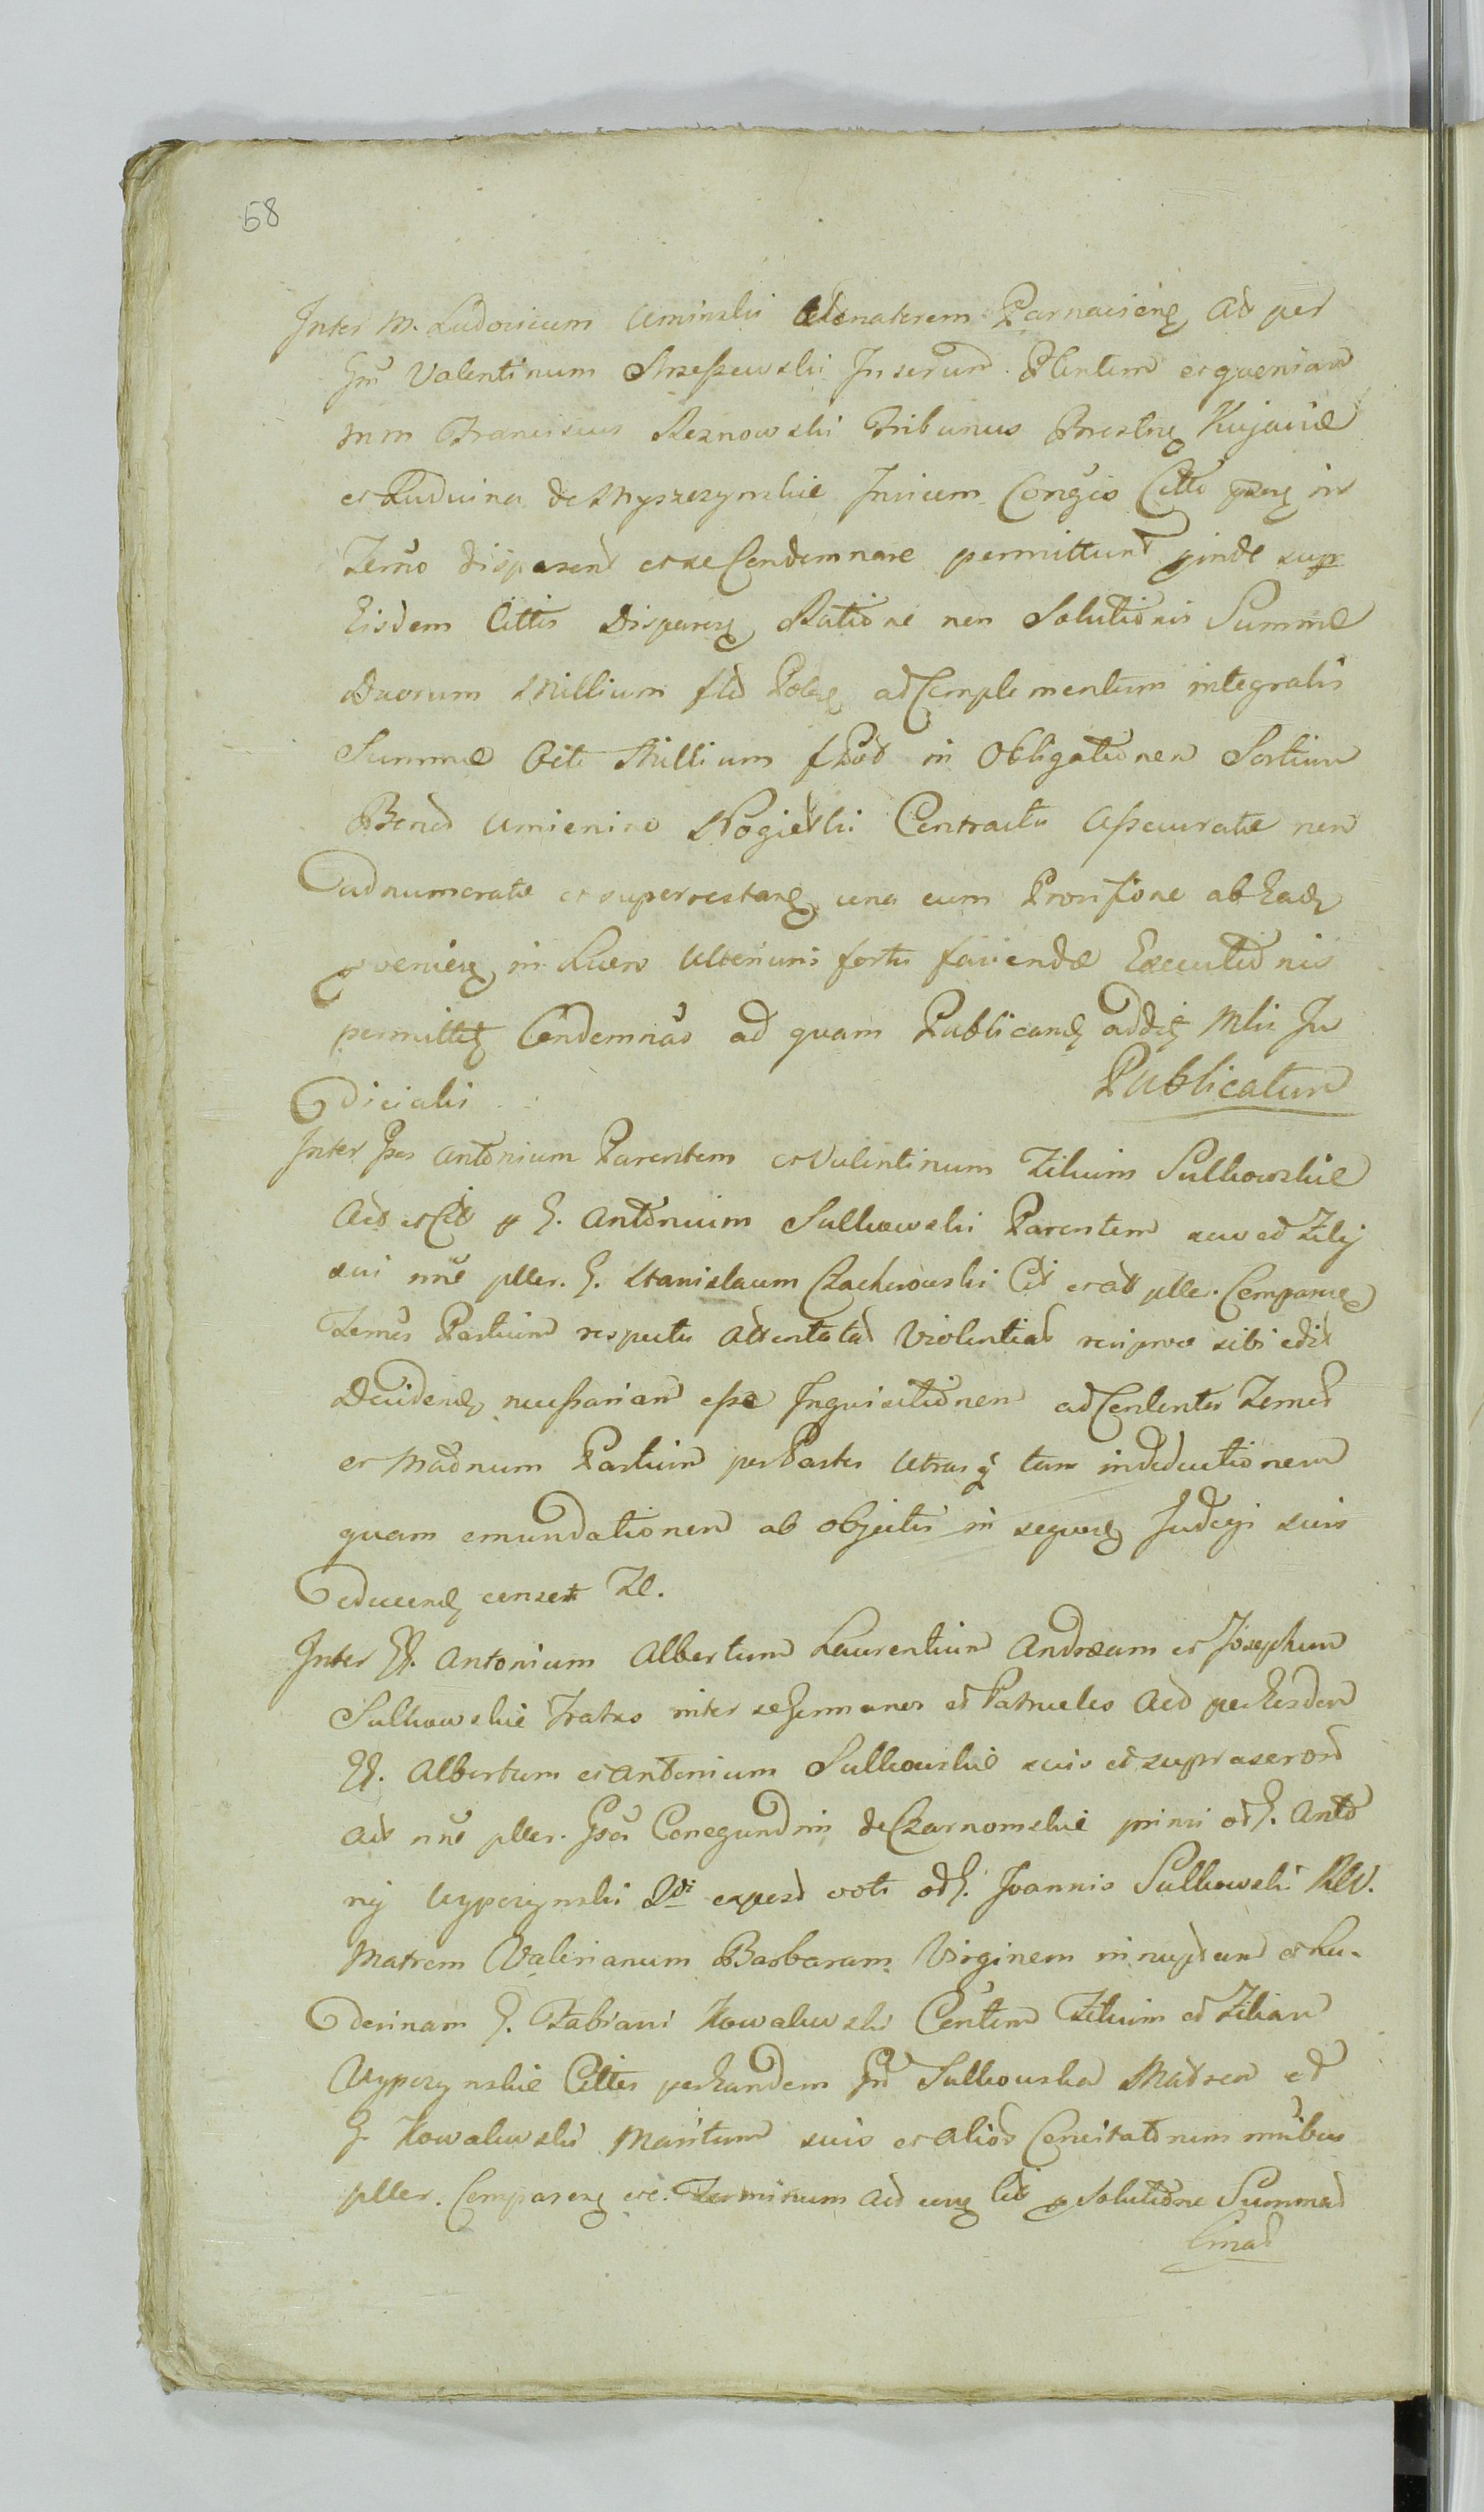 58
Inter M. Ludovicum Uminski Venatorem Parnavieng Act per
Gm Valentinum Strzeszewski Inserund Plentem et quoniam
Mm Franciscus Reznowski Tribunus Brestng Kujaviæ
et Luduina de Myszczynskie Invicem Congio Citto
Termo disparend et se Condemnare permittund pinde sup
Eisdem Cittis Disparerg Ratione non Solutionis Summæ
Duorum Millium flo Polg ad Complementum integralis
Summæ Octo Millium in Obligationem Sortium
Bonod Umienino Nogielski Contractu assecuratæ non
adnumeratæ et superrestang una cum Provisione ab Eadg
pveniēg in Lucro Ulterioris fortis faciendæ Executionis
permittg Condemnao ad quam Publicandg addg Mlis Ju
dicialis
Publicatum
Inter Gsos Antonium Parentem et Valentinum Filium Sulkowskie
Act et Cit p G. Antonium Sulkowski Parentem suo et Filij
sui nne pller. G. Stanislaum Czachowski Cit et att pller. Comparug
Termis Partium respectu attentatad Violentiad reciproce sibi edit
Decidendg necessariam esse Inquisitionem ad Contenta Termid
et Madnum Partium per Partes Utrasq tam in deductionem
quam emundationem ab objectis in sequeng Judcijs suis
educendg censet Zl.
Inter GG. Antonium Albertum Laurentium Andræam et Josephum
Sulkowskie Fratro inter se Germanos et Patrueles Act per Eosdem
GG. Albertum et Antonium Sulkowskie suis et supraserod
act nne pller. Gsa Conegundim de Czarnomskie primi od G. Anto
nij Wypczynski 2di expost voti od G. Joannis Sulkowski Rel.
Matrem Valerianum Barbaram Virginem innuptam et Lu-
dovinam G. Fabiani Kowalewski Contem Filium et Filiam
Wypczynskie Cittos per Eandem Gm Sulkowska Matrem et
G. Kowalewski Maritum suis et aliod Concitatorum nnibus
pller. Comparerg etc. Terminum Act eurg Cit p Solutione Summad
Cinad